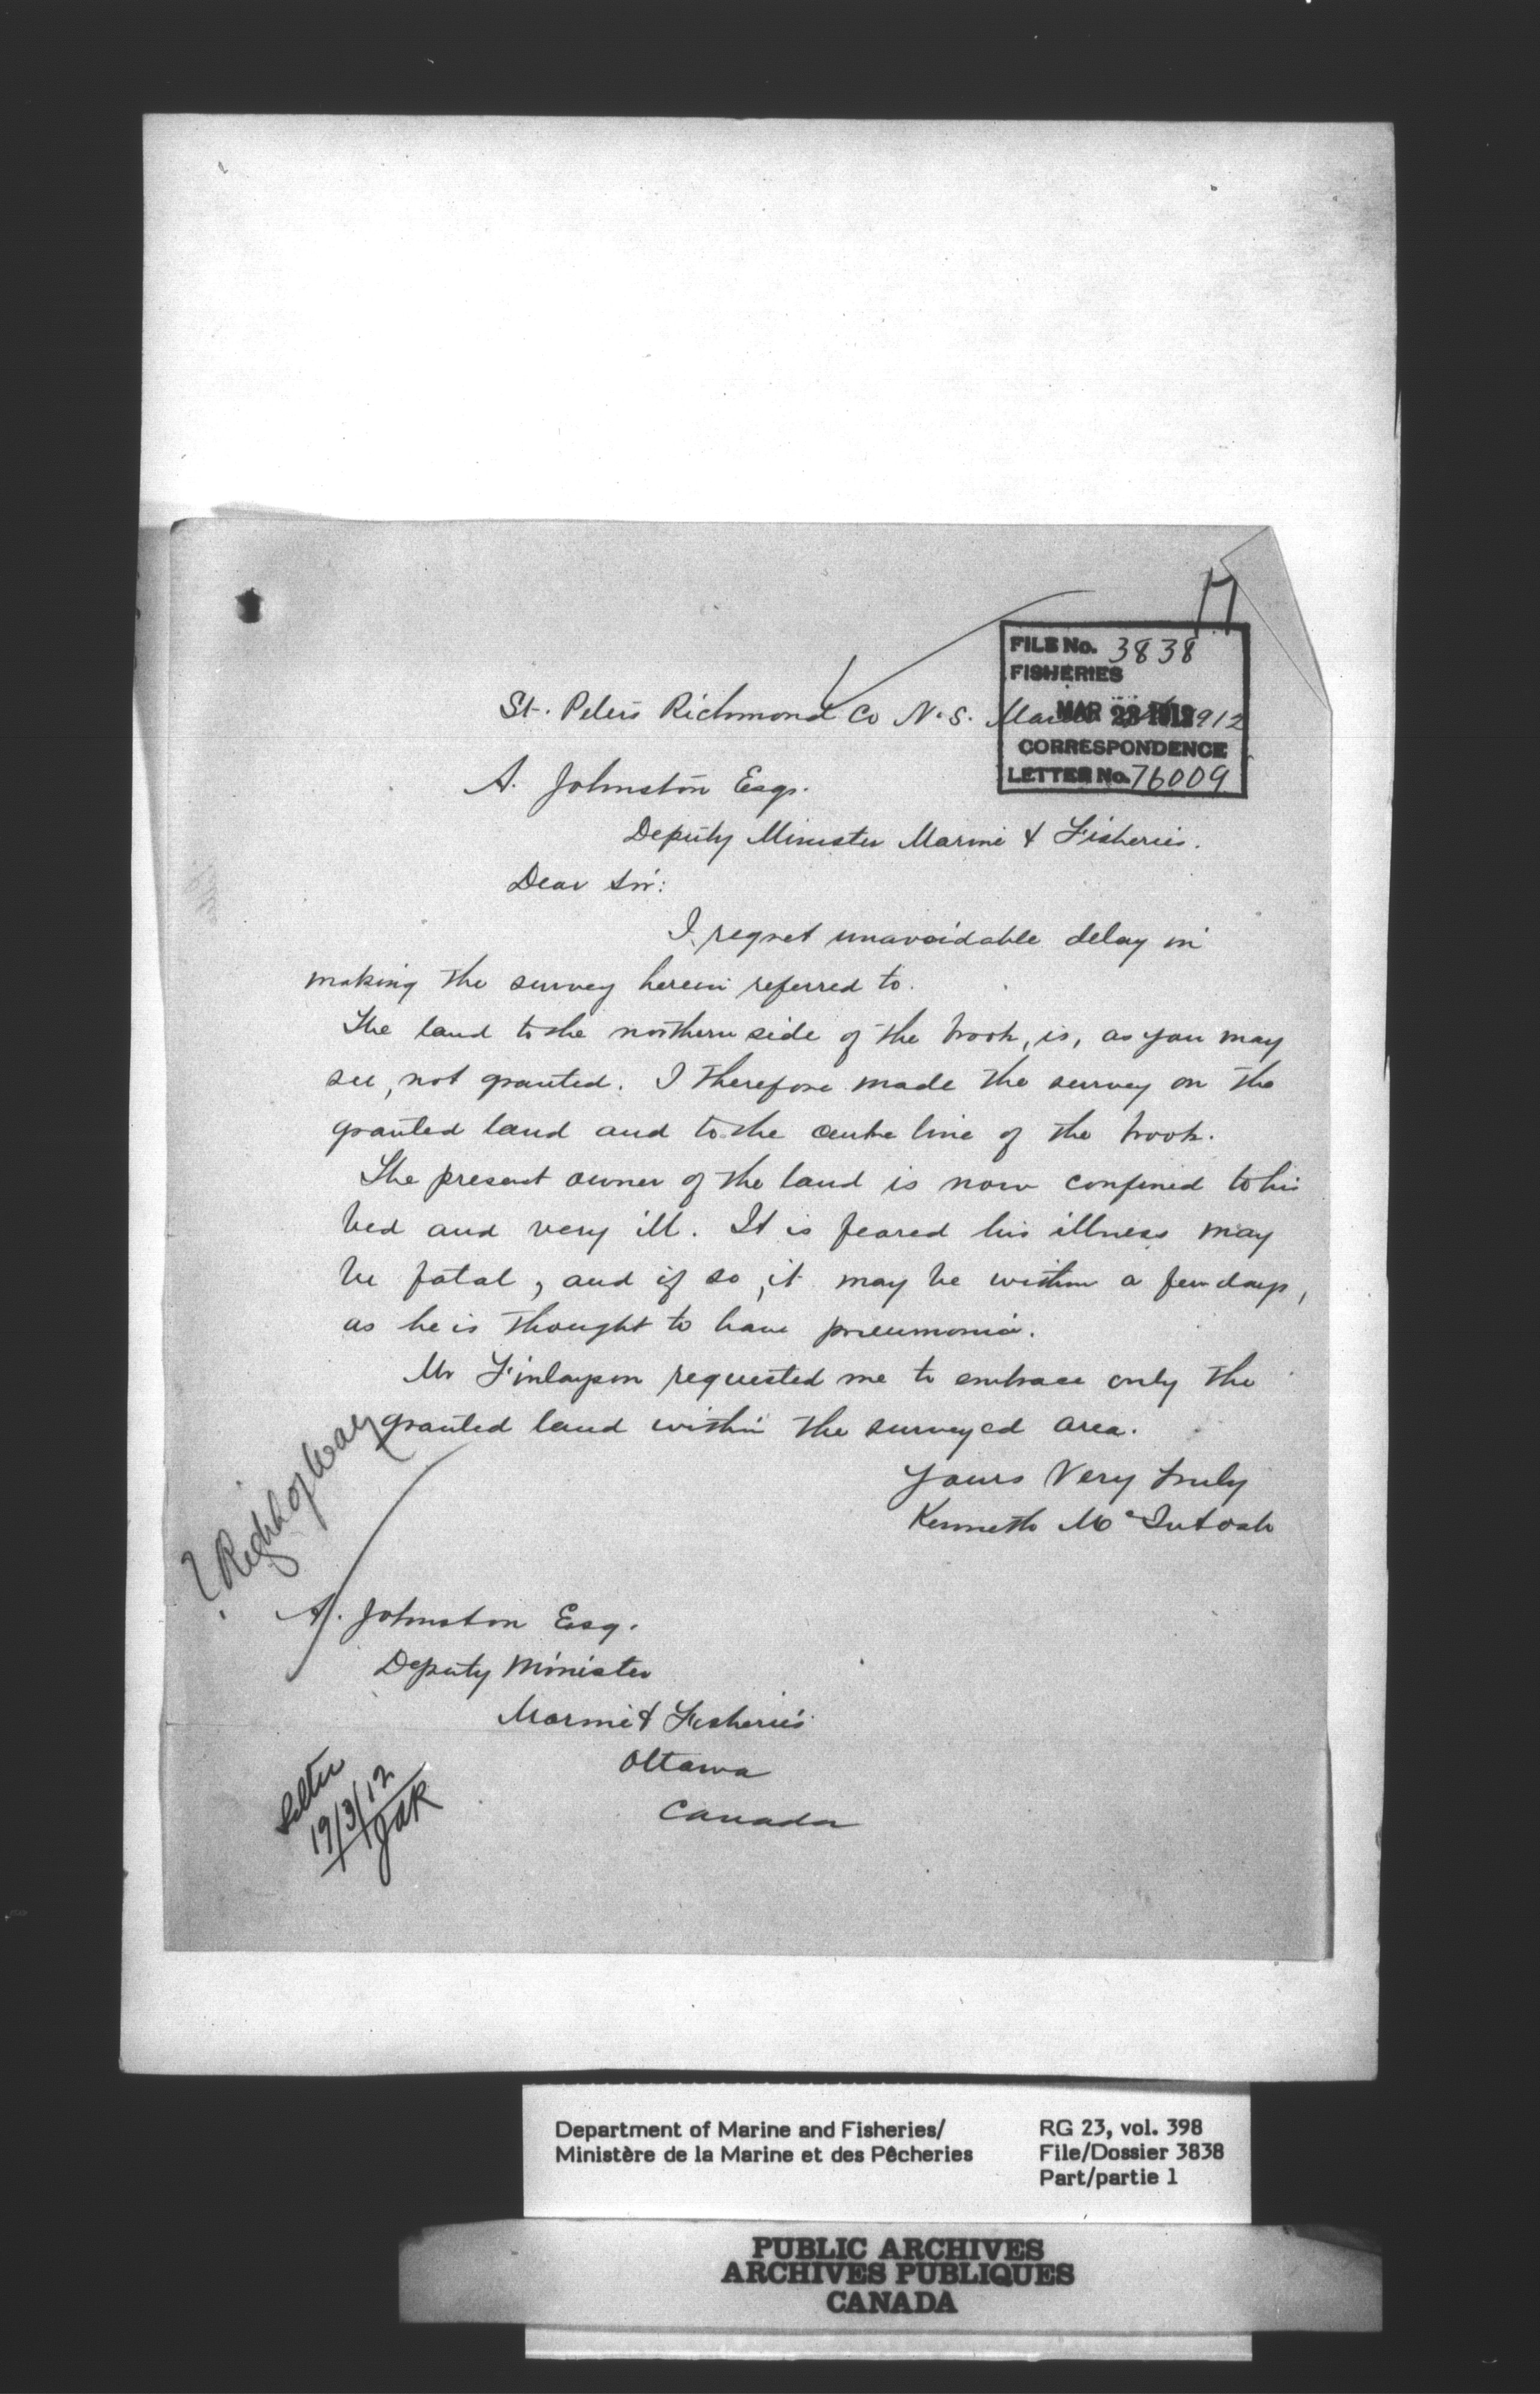 17
FILE No. 3838
FISHERIES
MAR 23 1912
CORRESPONDENCE
LETTER No. 76009
St. Peters Richmond Co N.S. March 1912
A. Johnston Esqr.
Deputy Minister Marine & Fisheries.
Dear Sir:
I regret unavoidable delay in
making the survey herein referred to.
The land to the northern side of the brook, is, as you may
see, not granted. I therefore made the survey on the
granted land and to the centre line of the brook.
The present owner of the land is now confined to his
bed and very ill. It is feared his illness may
be fatal, and if so, it may be within a few days,
as he is thought to have pneumonia.
Mr Finlayson requested me to embrace only the
granted land within the surveyed area.
Yours Very truly
Kenneth McIntosh
? Right of Way
A. Johnston Esq.
Deputy Minister
Marine & Fisheries
Ottawa
Canada
Letter
19/3/12
JAR
Department of Marine and Fisheries/
Ministère de la Marine et des Pêcheries
RG 23, vol. 398
File/Dossier 3838
Part/partie 1
PUBLIC ARCHIVES
ARCHIVES PUBLIQUES
CANADA